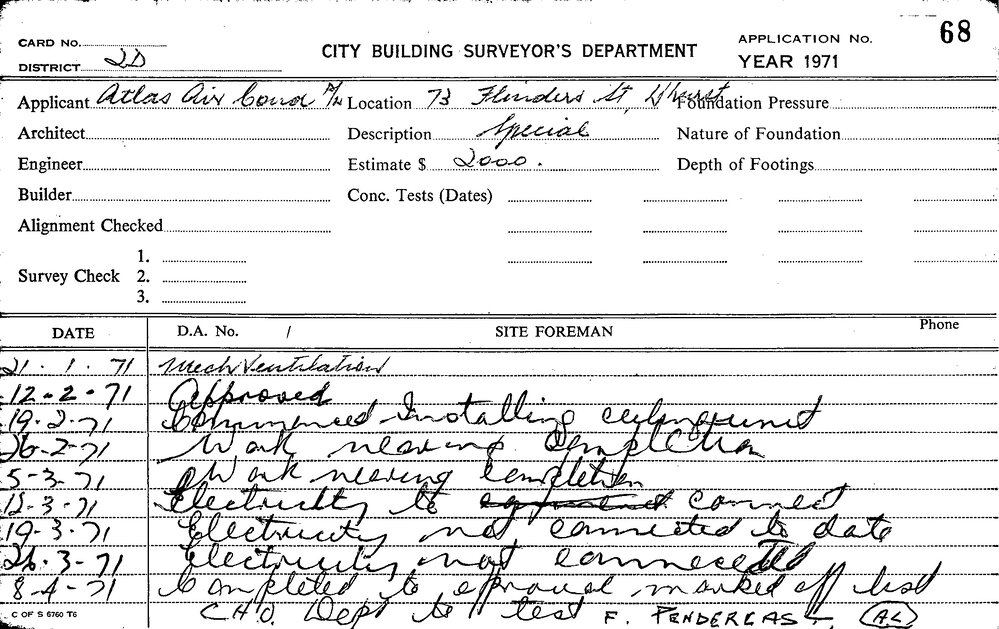 68
CARD No.
CITY BUILDING SURVEYOR'S DEPARTMENT
APPLICATION No.
DISTRICT 2D
YEAR 1971
Applicant Atlas Air Cond P/L Location 73 Flinders St, D'hurst Foundation Pressure
Architect Description Special Nature of Foundation
Engineer Estimate $ 2000. Depth of Footings
Builder Conc. Tests (Dates)
Alignment Checked
1.
Survey Check 2.
3.
DATE D.A. No. / SITE FOREMAN Phone
21.1.71 Mech Ventilation
12-2-71 Approved
19-2-71 Commenced Installing unit
26-2-71 Work nearing Completion
5-3-71 Work nearing Completion
12-3-71 Electricity to connect
19-3-71 Electricity not connected to date
26-3-71 Electricity not connected
8-4-71 Completed to aproval marked off list
C OF S 6760 T6 C.H.O. Dept to test F. PENDERGAST (AL)